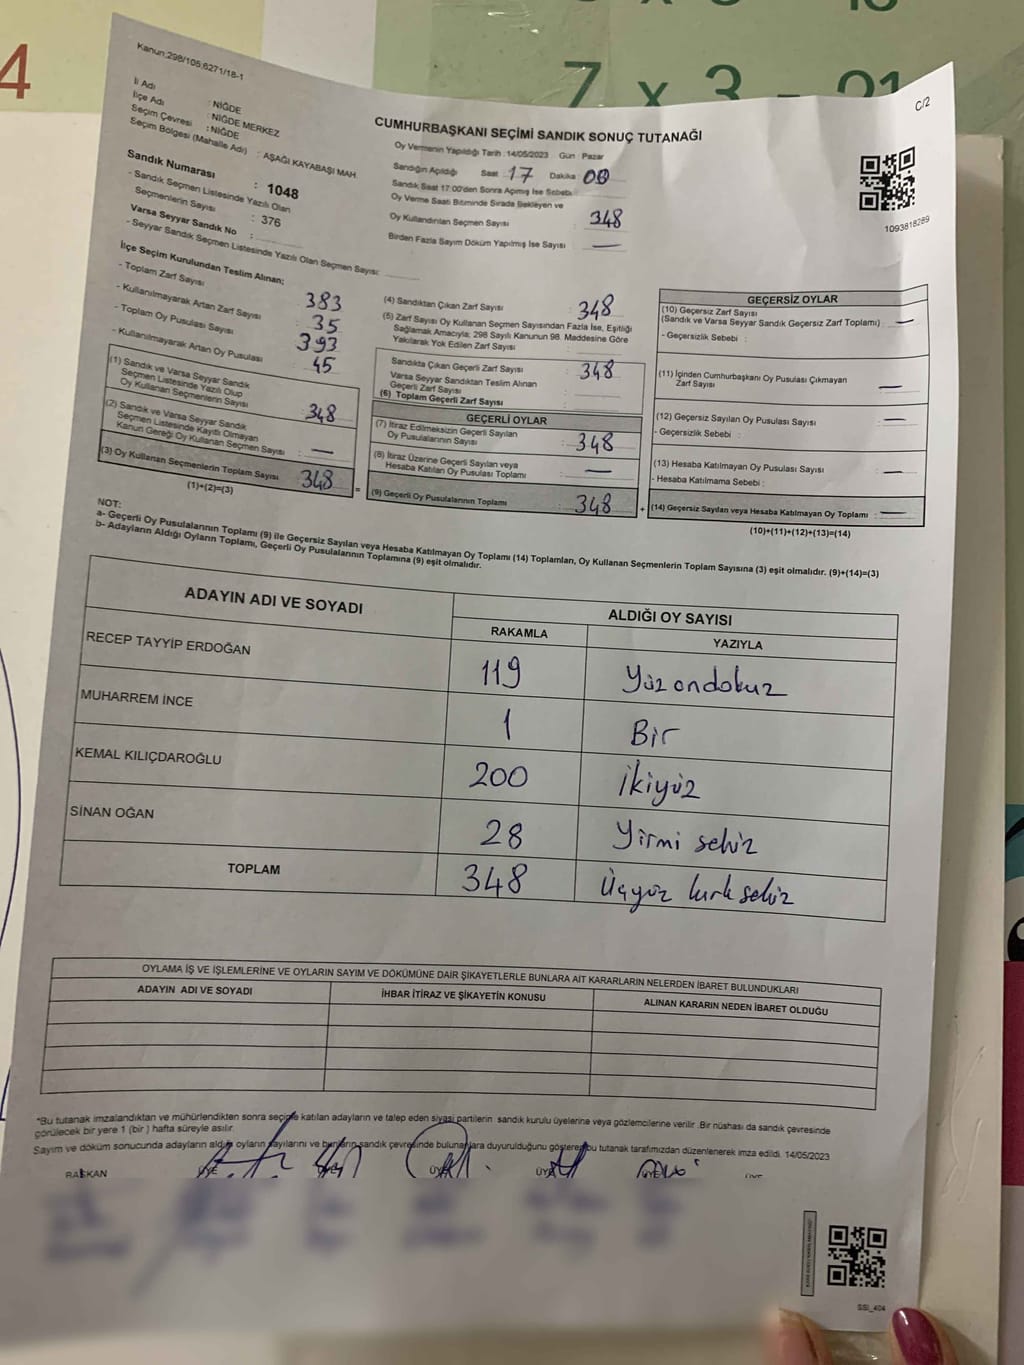 4
7 x 3 = 21
Kanun;298/105,6271/18-1
C/2
İl Adı : NİĞDE
İlçe Adı : NİĞDE MERKEZ
Seçim Çevresi : NİĞDE
Seçim Bölgesi (Mahalle Adı) : AŞAĞI KAYABAŞI MAH
Sandık Numarası : 1048
- Sandık Seçmen Listesinde Yazılı Olan
Seçmenlerin Sayısı : 376
Varsa Seyyar Sandık No :
- Seyyar Sandık Seçmen Listesinde Yazılı Olan Seçmen Sayısı:
CUMHURBAŞKANI SEÇİMİ SANDIK SONUÇ TUTANAĞI
Oy Vermenin Yapıldığı Tarih : 14/05/2023 Gün : Pazar
Sandığın Açıldığı Saat : 17 Dakika : 00
Sandık Saat 17:00'den Sonra Açılmış İse Sebebi :
Oy Verme Saati Bitiminde Sırada Bekleyen ve
Oy Kullandırılan Seçmen Sayısı : 348
Birden Fazla Sayım Döküm Yapılmış İse Sayısı : —
1093818289
İlçe Seçim Kurulundan Teslim Alınan;
- Toplam Zarf Sayısı : 383
- Kullanılmayarak Artan Zarf Sayısı : 35
- Toplam Oy Pusulası Sayısı : 393
- Kullanılmayarak Artan Oy Pusulası : 45
(1) Sandık ve Varsa Seyyar Sandık
Seçmen Listesinde Yazılı Olup
Oy Kullanan Seçmenlerin Sayısı : 348
(2) Sandık ve Varsa Seyyar Sandık
Seçmen Listesinde Kayıtlı Olmayan
Kanun Gereği Oy Kullanan Seçmen Sayısı : —
(3) Oy Kullanan Seçmenlerin Toplam Sayısı : 348
(1)+(2)=(3)
=
(4) Sandıktan Çıkan Zarf Sayısı : 348
(5) Zarf Sayısı Oy Kullanan Seçmen Sayısından Fazla İse, Eşitliği
Sağlamak Amacıyla; 298 Sayılı Kanunun 98. Maddesine Göre
Yakılarak Yok Edilen Zarf Sayısı :
Sandıkta Çıkan Geçerli Zarf Sayısı : 348
Varsa Seyyar Sandıktan Teslim Alınan
Geçerli Zarf Sayısı :
(6) Toplam Geçerli Zarf Sayısı :
GEÇERLİ OYLAR
(7) İtiraz Edilmeksizin Geçerli Sayılan
Oy Pusulalarının Sayısı : 348
(8) İtiraz Üzerine Geçerli Sayılan veya
Hesaba Katılan Oy Pusulası Toplamı : —
(9) Geçerli Oy Pusulalarının Toplamı : 348
+
GEÇERSİZ OYLAR
(10) Geçersiz Zarf Sayısı
(Sandık ve Varsa Seyyar Sandık Geçersiz Zarf Toplamı) : —
- Geçersizlik Sebebi :
(11) İçinden Cumhurbaşkanı Oy Pusulası Çıkmayan
Zarf Sayısı : —
(12) Geçersiz Sayılan Oy Pusulası Sayısı : —
- Geçersizlik Sebebi :
(13) Hesaba Katılmayan Oy Pusulası Sayısı : —
- Hesaba Katılmama Sebebi :
(14) Geçersiz Sayılan veya Hesaba Katılmayan Oy Toplamı : —
(10)+(11)+(12)+(13)=(14)
NOT:
a- Geçerli Oy Pusulalarının Toplamı (9) ile Geçersiz Sayılan veya Hesaba Katılmayan Oy Toplamı (14) Toplamları, Oy Kullanan Seçmenlerin Toplam Sayısına (3) eşit olmalıdır. (9)+(14)=(3)
b- Adayların Aldığı Oyların Toplamı, Geçerli Oy Pusulalarının Toplamına (9) eşit olmalıdır.
ADAYIN ADI VE SOYADI ALDIĞI OY SAYISI
RAKAMLA YAZIYLA
RECEP TAYYİP ERDOĞAN 119 Yüz ondokuz
MUHARREM İNCE 1 Bir
KEMAL KILIÇDAROĞLU 200 İkiyüz
SİNAN OĞAN 28 Yirmi sekiz
TOPLAM 348 Üçyüz kırk sekiz
OYLAMA İŞ VE İŞLEMLERİNE VE OYLARIN SAYIM VE DÖKÜMÜNE DAİR ŞİKAYETLERLE BUNLARA AİT KARARLARIN NELERDEN İBARET BULUNDUKLARI
ADAYIN ADI VE SOYADI İHBAR İTİRAZ VE ŞİKAYETİN KONUSU ALINAN KARARIN NEDEN İBARET OLDUĞU
*Bu tutanak imzalandıktan ve mühürlendikten sonra seçime katılan adayların ve talep eden siyasi partilerin sandık kurulu üyelerine veya gözlemcilerine verilir .Bir nüshası da sandık çevresinde
görülecek bir yere 1 (bir ) hafta süreyle asılır.
Sayım ve döküm sonucunda adayların aldığı oyların sayılarını ve bunların sandık çevresinde bulunanlara duyurulduğunu gösteren bu tutanak tarafımızdan düzenlenerek imza edildi. 14/05/2023
BAŞKAN ÜYE ÜYE ÜYE ÜYE ÜYE
SSI_404